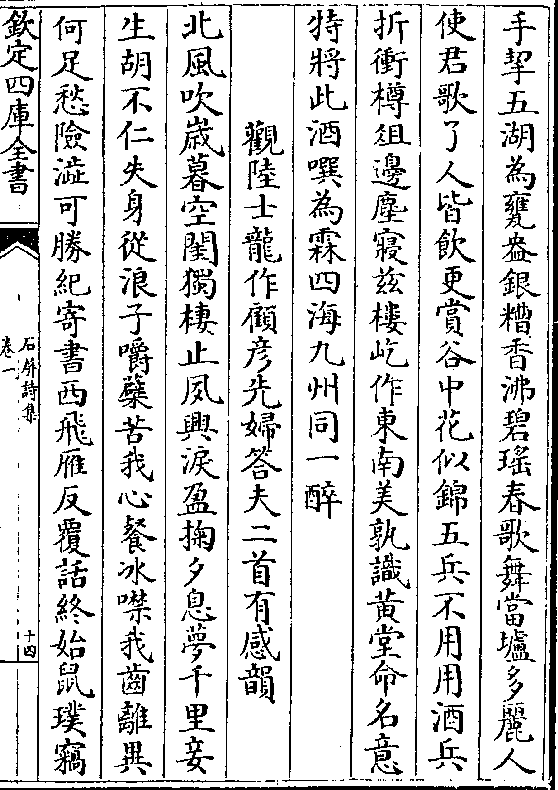 手挈五湖為甕盎銀糟香沸碧瑤春歌舞當壚多麗人
使君歌了人皆飲更賞谷中花似錦五兵不用用酒兵
折衝樽俎邊塵寢兹樓屹作東南美孰識黃堂命名意
特將此酒噀為霖四海九州同一醉
觀陸士龍作顧彦先婦答夫二首有感韻
北風吹嵗暮空閨獨棲止夙興淚盈掬夕息夢千里妾
生胡不仁失身從浪子嚼蘗苦我心餐冰噤我齒離異
何足愁險澁可勝紀寄書西飛雁反覆話終始鼠璞竊
欽定四庫全書
石屏詩集
卷一
十四